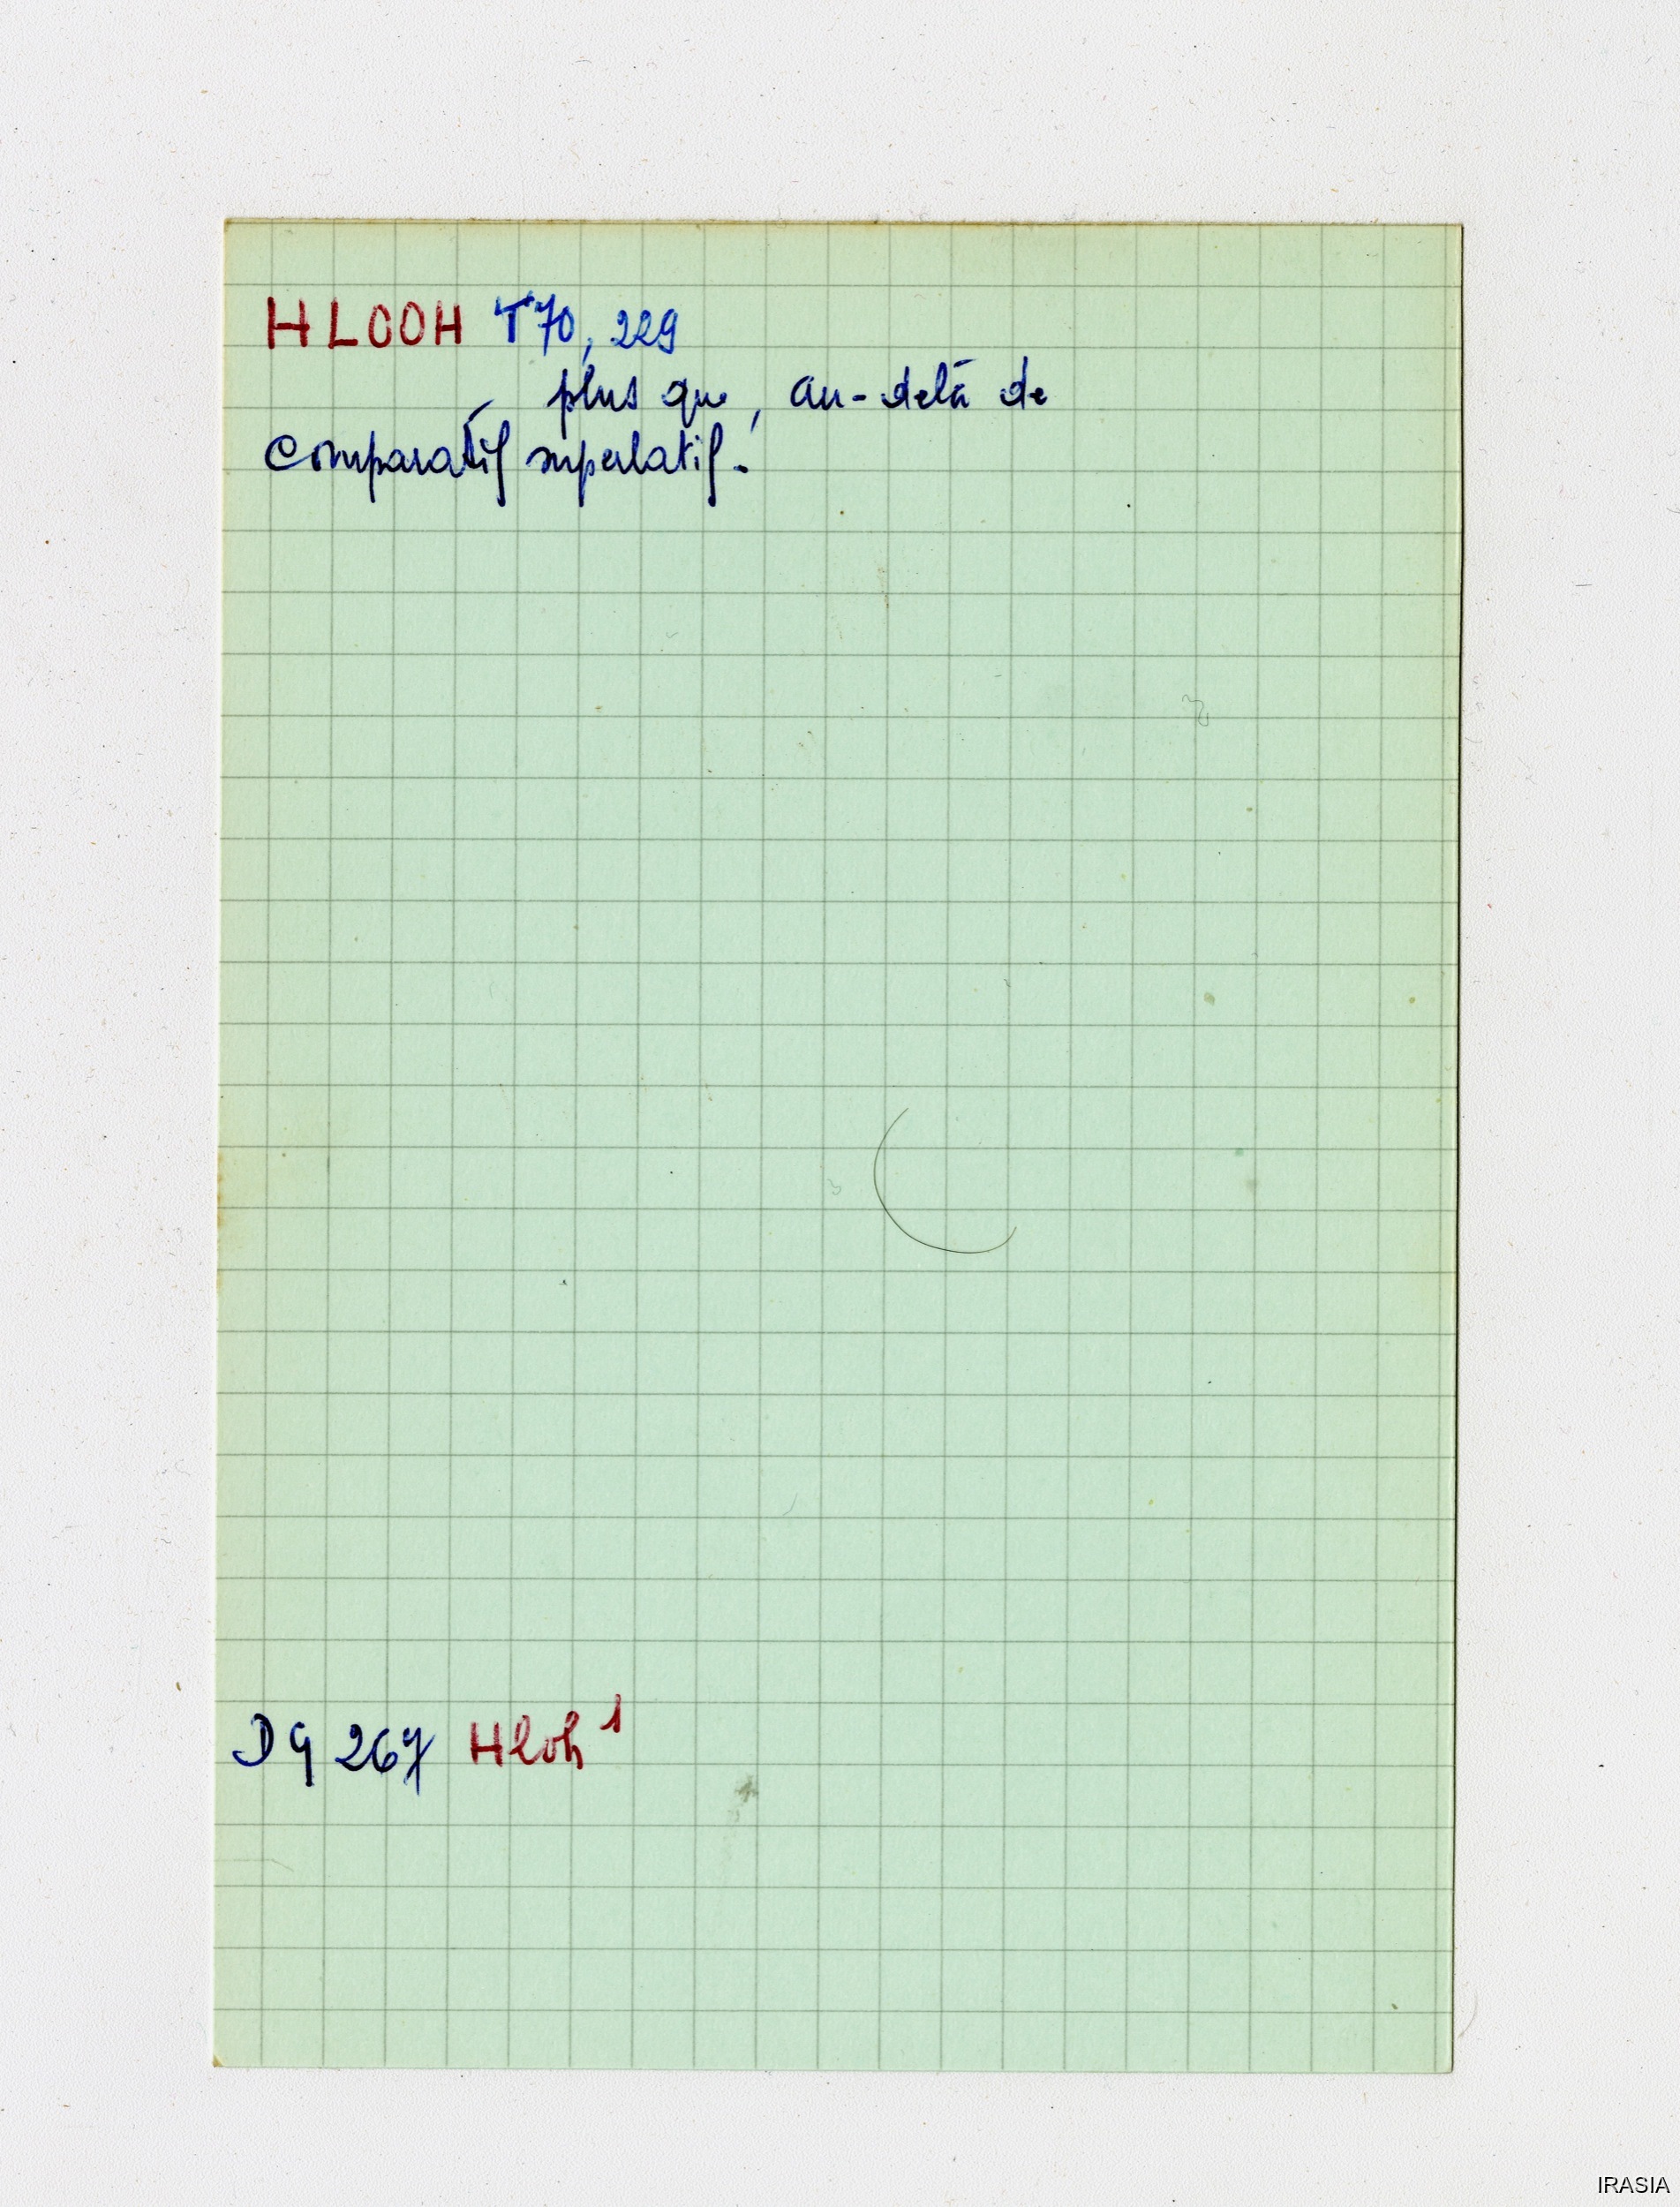 HLOOH T70, 229
plus que, au-delà de
Comparatif superlatif.
DG 267 Hloh¹
IRASIA